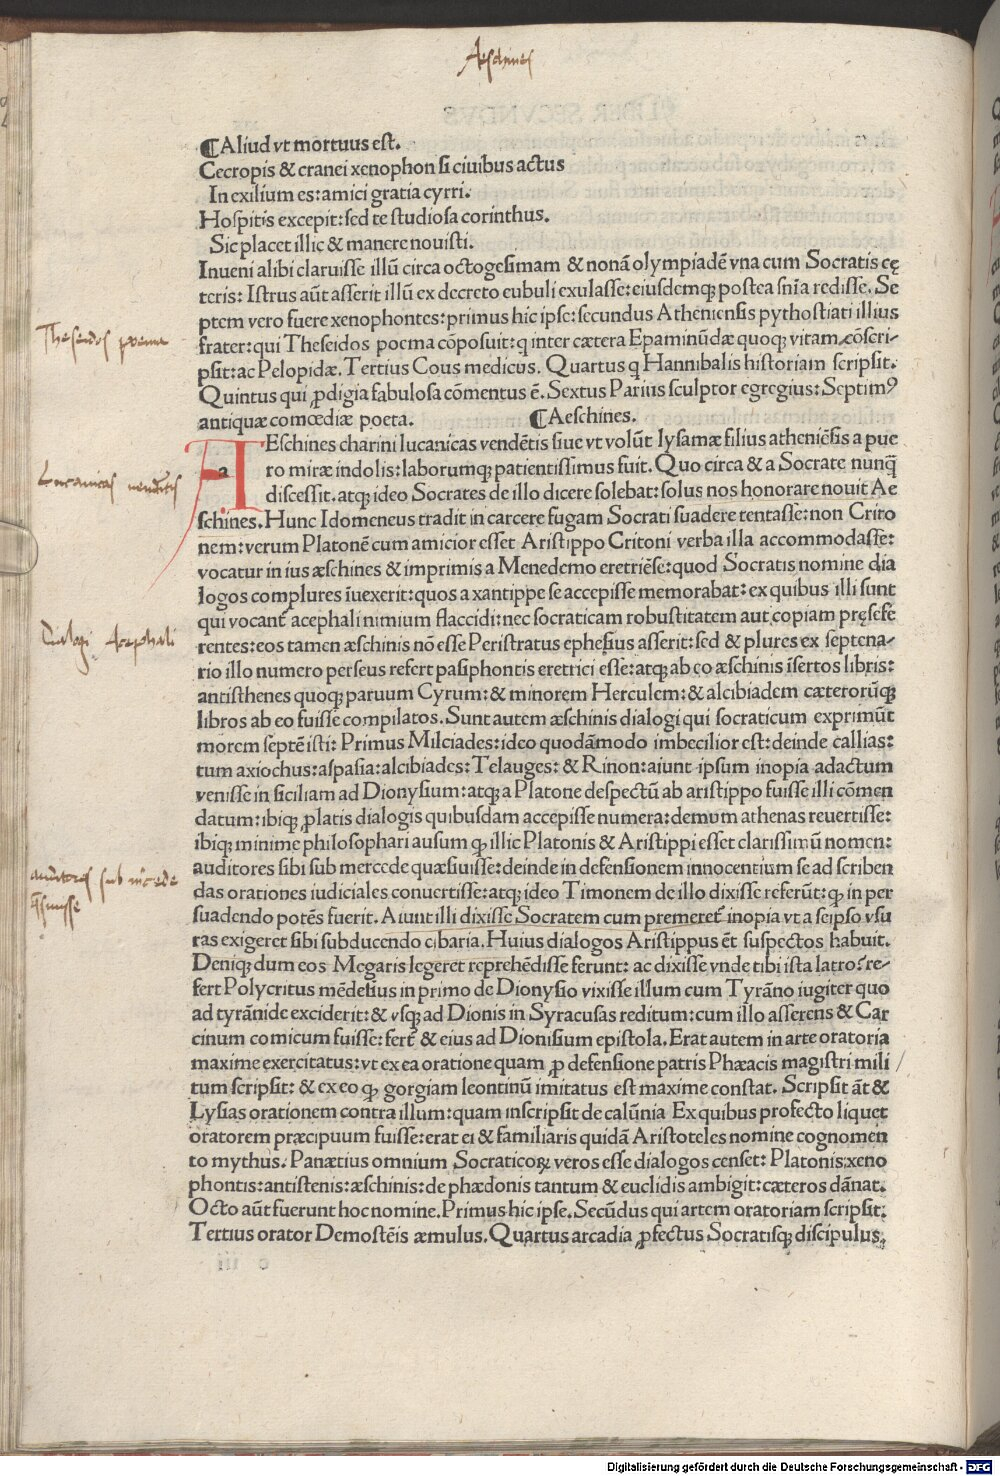 Aeschines
¶Aliud vt mortuus est.
Cecropis & cranei xenophon si ciuibus actus
In exilium es: amici gratia cyrri.
Hospitis excepit: sed te studiosa corinthus.
Sic placet illic & manere nouisti.
Inueni alibi claruisse illū circa octogesimam & nonā olympiadē vna cum Socratis cę
teris: Istrus aūt asserit illū ex decreto eubuli exulasse: eiusdemqꝫ postea snīa redisse. Se
ptem vero fuere xenophontes: primus hic ipse: secundus Atheniensis pythostiati illius
Theseidos poema
frater: qui Theseidos poema cōposuit: q inter cætera Epaminūdæ quoqꝫ vitam cōscri-
psit: ac Pelopidæ. Tertius Cous medicus. Quartus q Hannibalis historiam scripsit.
Quintus qui ꝓdigia fabulosa cōmentus ē. Sextus Parius sculptor egregius: Septimꝰ
antiquæ comœdiæ poeta. ¶Aeschines.
AEschines charini lucanicas vendētis siue vt volūt lysamæ filius atheniēsis a pue
ro miræ indolis: laborumqꝫ patientissimus fuit. Quo circa & a Socrate nunq̄
Lucanicas vendētis
discessit. atqꝫ ideo Socrates de illo dicere solebat: solus nos honorare nouit Ae
schines. Hunc Idomeneus tradit in carcere fugam Socrati suadere tentasse: non Crito
nem: verum Platonē cum amicior esset Aristippo Critoni verba illa accommodasse:
vocatur in ius æschines & imprimis a Menedemo eretriēse: quod Socratis nomine dia
logos complures īuexerit: quos a xantippe se accepisse memorabat: ex quibus illi sunt
qui vocant̄ acephali nimium flaccidi: nec socraticam robustitatem aut copiam pręsefe
Dialogi Acephali
rentes: eos tamen æschinis nō esse Peristratus ephesius asserit: sed & plures ex septena-
rio illo numero perseus refert pasiphontis eretrici esse: atqꝫ ab eo æschinis īsertos libris:
antisthenes quoqꝫ paruum Cyrum: & minorem Herculem: & alcibiadem cæterorūqꝫ
libros ab eo fuisse compilatos. Sunt autem æschinis dialogi qui socraticum exprimūt
morem septē isti: Primus Milciades: ideo quodāmodo imbecilior est: deinde callias:
tum axiochus: aspasia: alcibiades: Telauges: & Rinon: aiunt ipsum inopia adactum
venisse in siciliam ad Dionysium: atqꝫ a Platone despectū ab aristippo fuisse illi cōmen
datum: ibiqꝫ ꝓlatis dialogis quibusdam accepisse numera: demum athenas reuertisse:
ibiqꝫ minime philosophari ausum qꝙ illic Platonis & Aristippi esset clarissimū nomen:
auditores sub m̄cede
quęsiuisse
auditores sibi sub mercede quæsiuisse: deinde in defensionem innocentium se ad scriben
das orationes iudiciales conuertisse: atqꝫ ideo Timonem de illo dixisse referūt: ꝙ in per
suadendo potēs fuerit. Aiunt illi dixisse Socratem cum premeret̄ inopia vt a seipso vsu
ras exigeret sibi subducendo cibaria. Huius dialogos Aristippus ēt suspectos habuit.
Deniqꝫ dum eos Megaris legeret reprehēdisse ferunt: ac dixisse vnde tibi ista latro? re-
fert Polycritus mēdesius in primo de Dionysio vixisse illum cum Tyrāno iugiter quo
ad tyrānide exciderit: & vsqꝫ ad Dionis in Syracusas reditum: cum illo asserens & Car
cinum comicum fuisse: fert̄ & eius ad Dionisium epistola. Erat autem in arte oratoria
maxime exercitatus: vt ex ea oratione quam ꝓ defensione patris Phæacis magistri mili
tum scripsit: & ex eo ꝙ gorgiam leontinū imitatus est maxime constat. Scripsit āt &
Lysias orationem contra illum: quam inscripsit de calūnia Ex quibus profecto liquet
oratorem præcipuum fuisse: erat ei & familiaris quidā Aristoteles nomine cognomen
to mythus. Panætius omnium Socraticoꝝ veros esse dialogos censet: Platonis: xeno
phontis: antistenis: æschinis: de phædonis tantum & euclidis ambigit: cæteros dānat.
Octo aūt fuerunt hoc nomine. Primus hic ipse. Secūdus qui artem oratoriam scripsit:
Tertius orator Demostēis æmulus. Quartus arcadia ꝓfectus Socratisqꝫ discipulus.
Digitalisierung gefördert durch die Deutsche Forschungsgemeinschaft - DFG